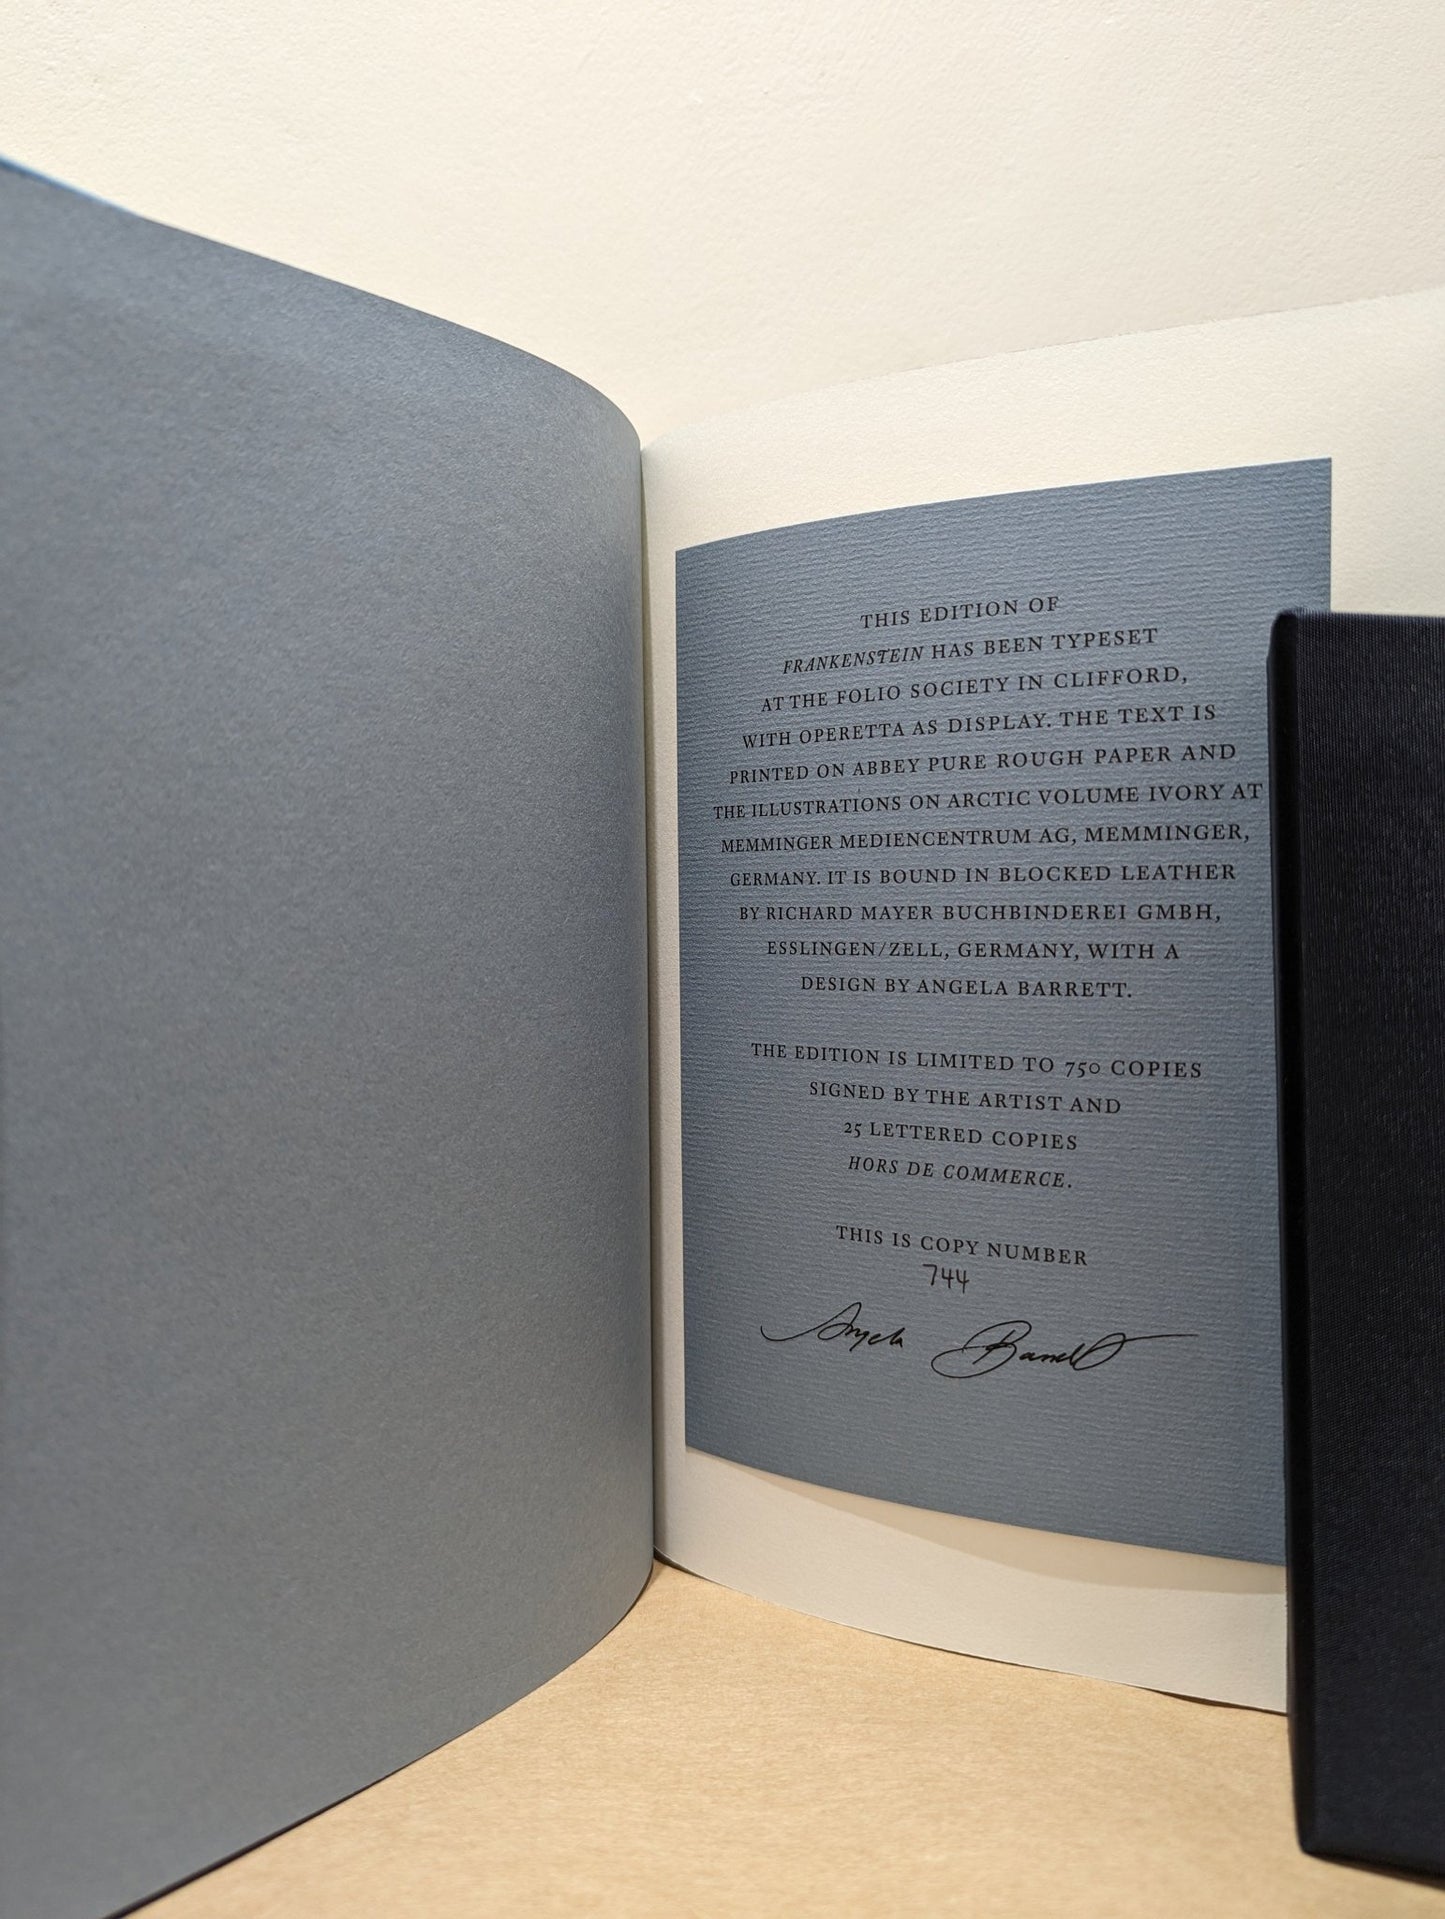 THIS EDITION OF
FRANKENSTEIN HAS BEEN TYPESET
AT THE FOLIO SOCIETY IN CLIFFORD,
WITH OPERETTA AS DISPLAY. THE TEXT IS
PRINTED ON ABBEY PURE ROUGH PAPER AND
THE ILLUSTRATIONS ON ARCTIC VOLUME IVORY AT
MEMMINGER MEDIENCENTRUM AG, MEMMINGER,
GERMANY. IT IS BOUND IN BLOCKED LEATHER
BY RICHARD MAYER BUCHBINDEREI GMBH,
ESSLINGEN/ZELL, GERMANY, WITH A
DESIGN BY ANGELA BARRETT.
THE EDITION IS LIMITED TO 750 COPIES
SIGNED BY THE ARTIST AND
25 LETTERED COPIES
HORS DE COMMERCE.
THIS IS COPY NUMBER
744
Angela Barrett